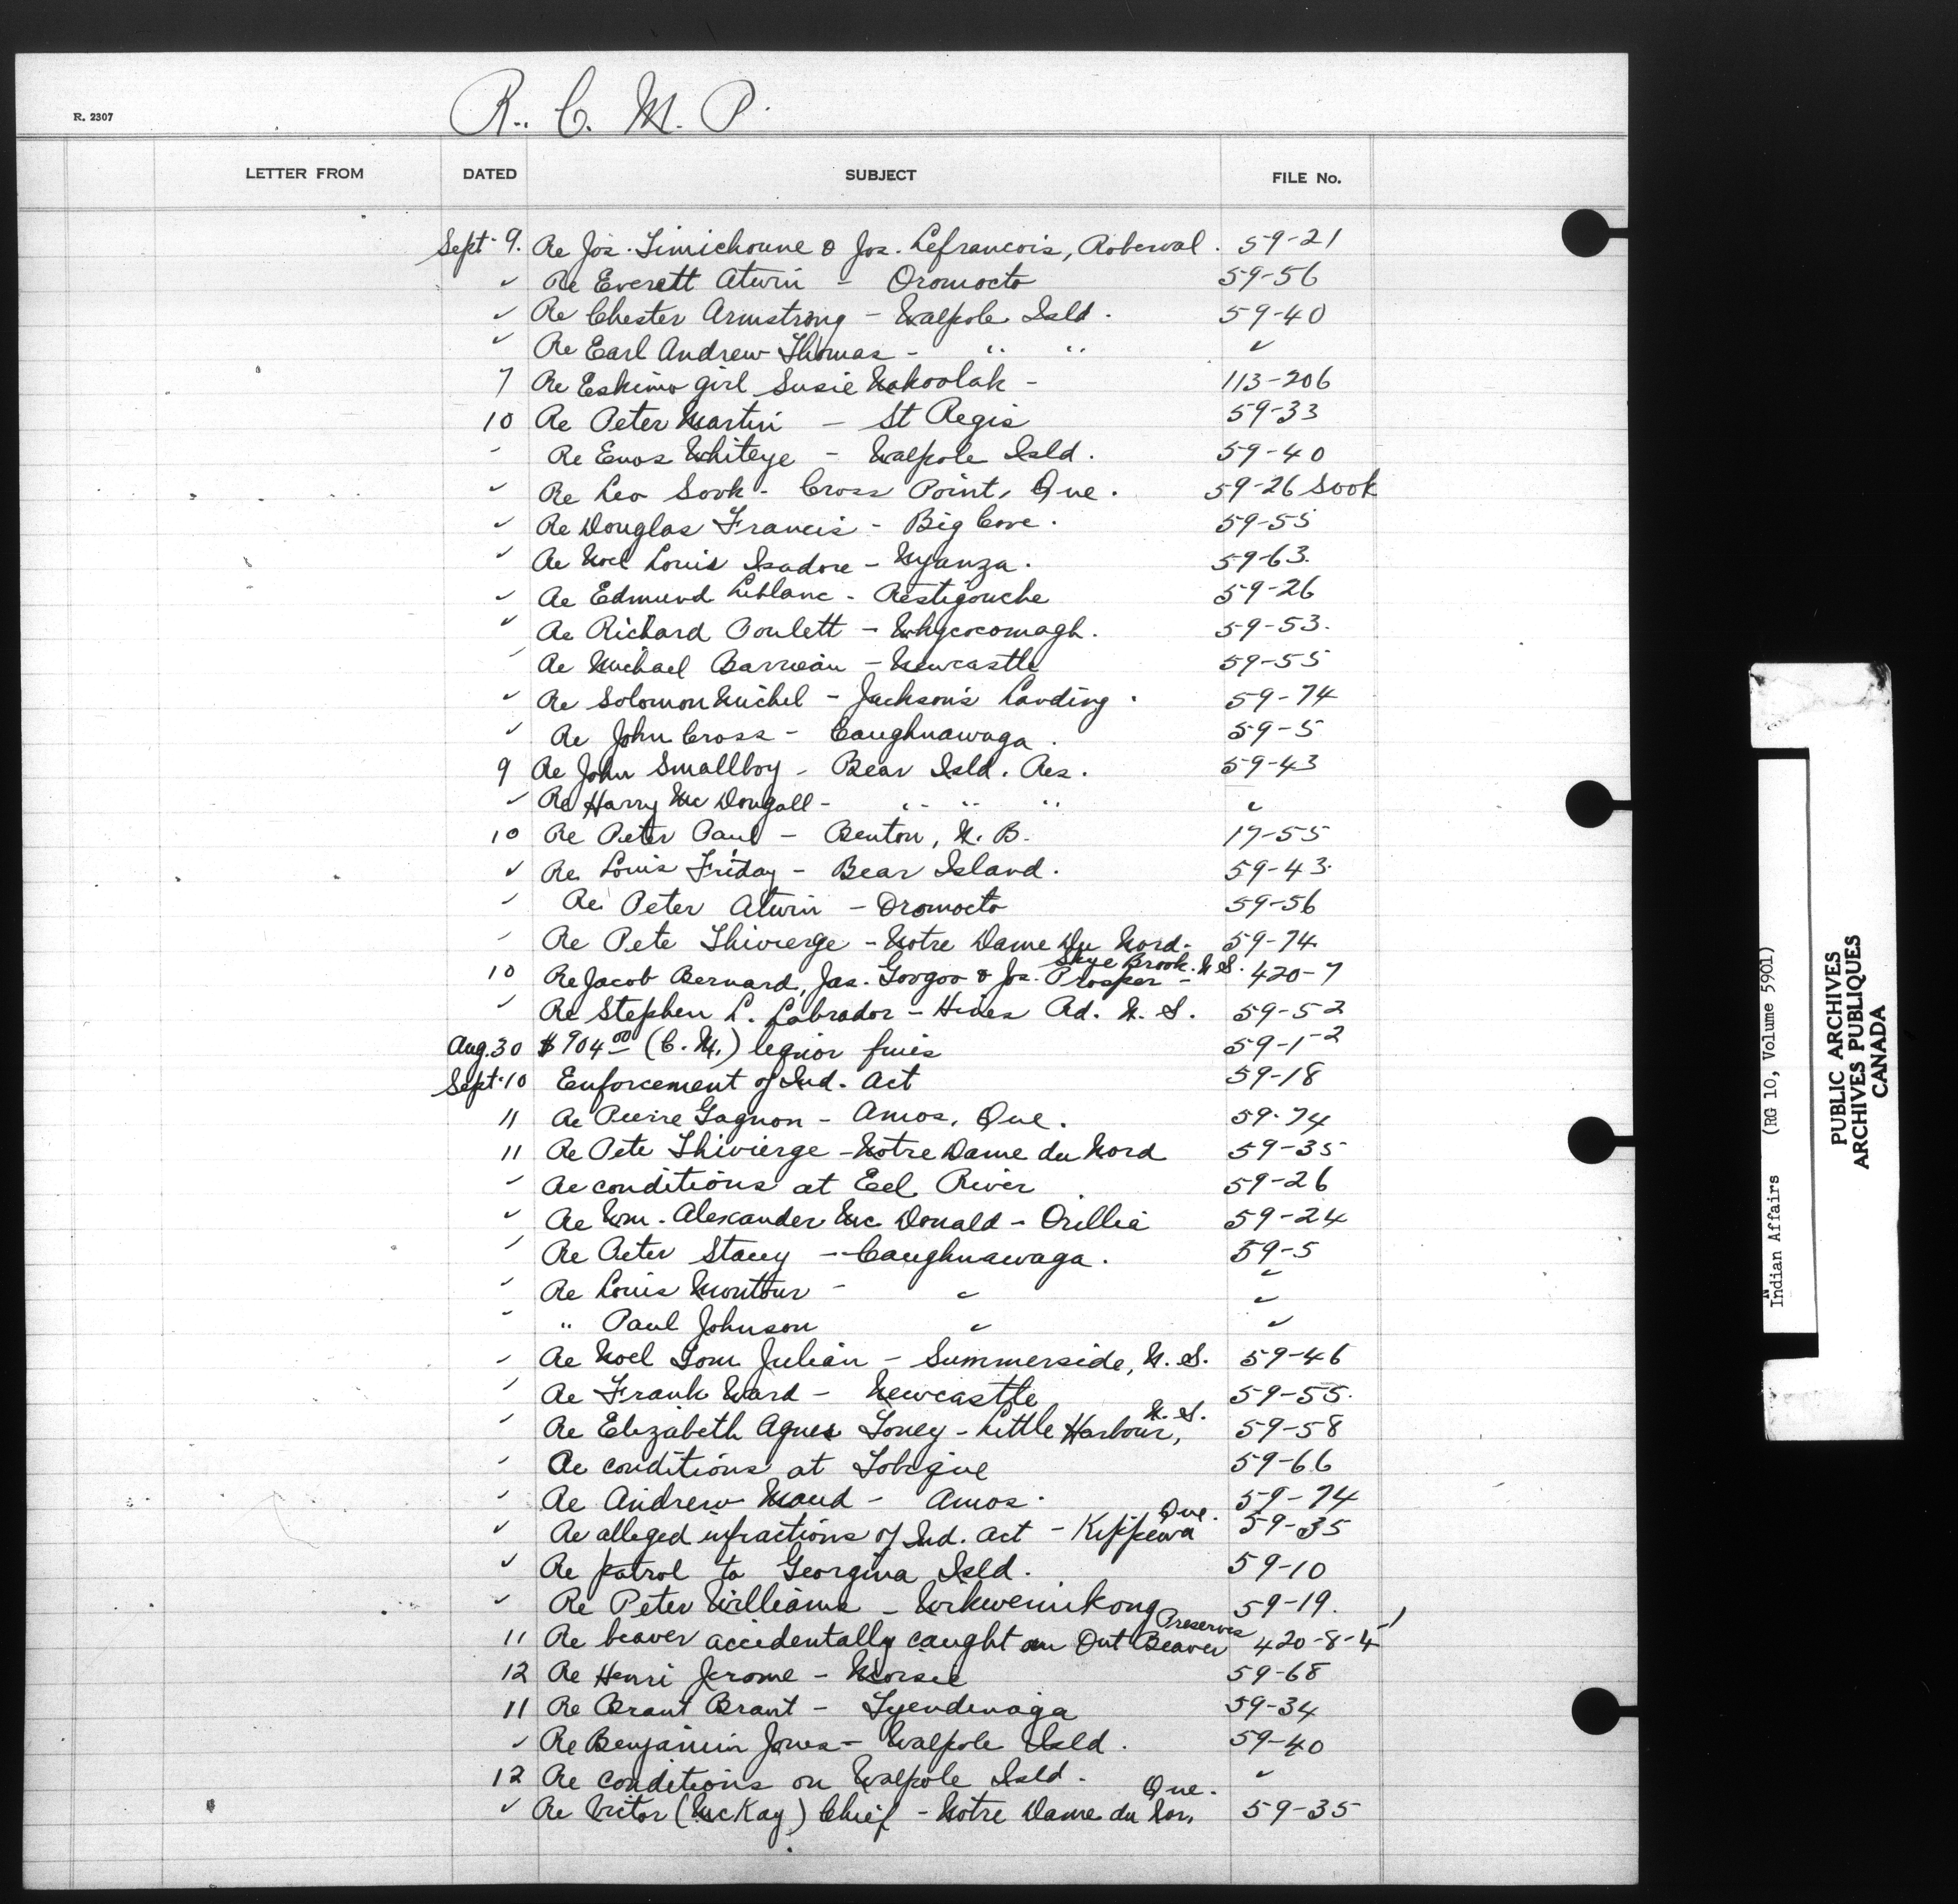 R. C. M. P.
R. 2307
LETTER FROM DATED SUBJECT FILE No.
Sept. 9. Re Jos. Simichoune & Jos. Lefrancois, Roberval. 59-21
✓ Re Everett Atwin - Oromocto 59-56
✓ Re Chester Armstrong - Walpole Isld. 59-40
✓ Re Earl Andrew Thomas - " " ✓
7 Re Eskimo girl Susie Nakoolak - 113-206
10 Re Peter Martin - St Regis 59-33
" Re Enos Whiteye - Walpole Isld. 59-40
✓ Re Leo Sook - Cross Point, Que. 59-26 Sook
✓ Re Douglas Francis - Big Cove. 59-55
✓ Re Noel Louis Isadore - Nyanza. 59-63.
✓ Re Edmund Leblanc - Restigouche 59-26
✓ Re Richard Poulett - Whycocomagh. 59-53.
✓ Re Michael Barrieau - Newcastle 59-55
✓ Re Solomon Michel - Jackson's Landing. 59-74
✓ Re John Cross - Caughnawaga. 59-5
9 Re John Smallboy - Bear Isld. Res. 59-43
✓ Re Harry McDougall - " " " ✓
10 Re Peter Paul - Benton, N. B. 17-55
✓ Re Louis Friday - Bear Island. 59-43.
✓ Re Peter Atwin - Oromocto 59-56
✓ Re Pete Thivierge - Notre Dame Du Nord. 59-74.
10 Re Jacob Bernard, Jas. Googoo & Jos. Prosper - Skye Brook. N.S. 420-7
✓ Re Stephen L. Labrador - Hines Rd. N. S. 59-52
Aug. 30 $904.00 (C. M.) liquor fines 59-1-2
Sept. 10 Enforcement of Ind. Act 59-18
11 Re Pierre Gagnon - Amos, Que. 59-74
11 Re Pete Thivierge - Notre Dame du Nord 59-35
✓ Re conditions at Eel River 59-26
✓ Re Wm. Alexander McDonald - Orillia 59-24
✓ Re Peter Stacey - Caughnawaga. 59-5
✓ Re Louis Montour - ✓ ✓
✓ " Paul Johnson ✓ ✓
✓ Re Noel Tom Julian - Summerside, N. S. 59-46
✓ Re Frank Ward - Newcastle 59-55.
✓ Re Elizabeth Agnes Toney - Little Harbour, N. S. 59-58
✓ Re conditions at Tobique 59-66
✓ Re Andrew Moud - Amos. 59-74
✓ Re alleged infractions of Ind. Act - Kippewa Que. 59-35
✓ Re patrol to Georgina Isld. 59-10
✓ Re Peter Williams - Wikwemikong 59-19.
11 Re beaver accidentally caught on Ont Beaver Preserves 420-8-4-1
12 Re Henri Jerome - Moisie 59-68
11 Re Brant Brant - Tyendinaga 59-34
✓ Re Benjamin Jones - Walpole Isld. 59-40
12 Re conditions on Walpole Isld. ✓
✓ Re Victor (McKay) Chief - Notre Dame du Nor, Que. 59-35
Indian Affairs (RG 10, Volume 5901)
PUBLIC ARCHIVES
ARCHIVES PUBLIQUES
CANADA